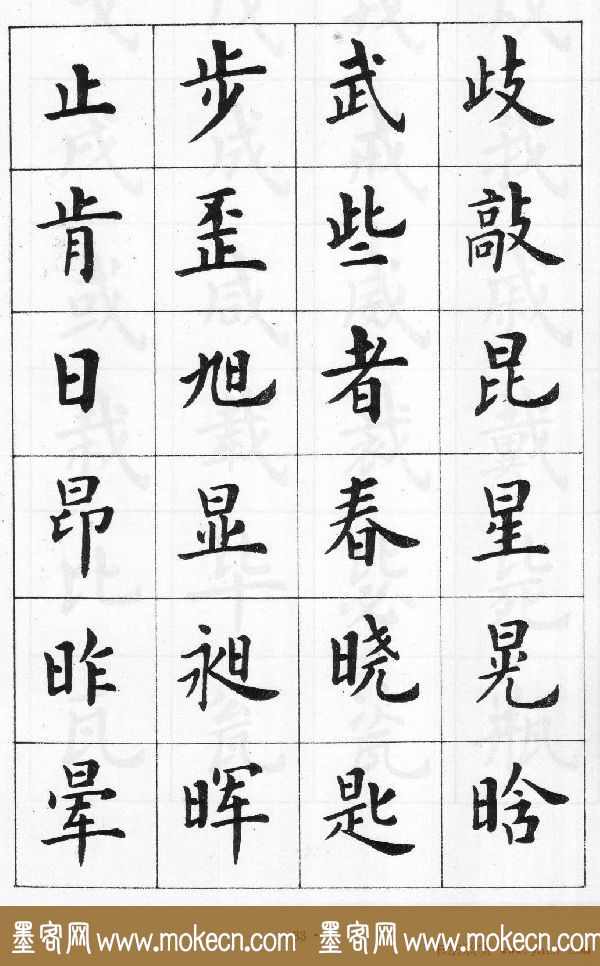 止 步 武 歧
肯 歪 些 敲
日 旭 者 昆
昂 显 春 星
昨 昶 晓 晃
晕 晖 匙 晗
墨客网 www.mokecn.com 墨客网 www.mokecn.com